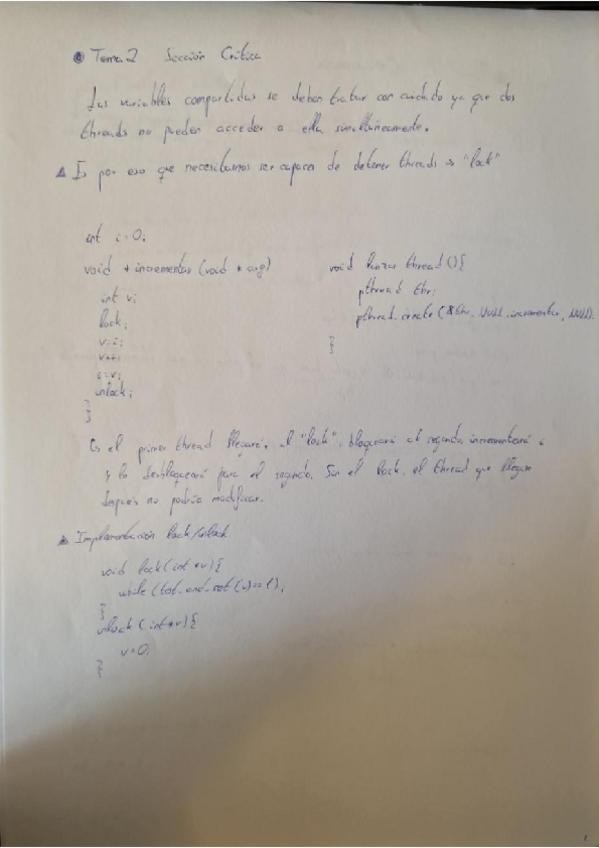 Tema 2 Sección Crítica
Las variables compartidas se deben tratar con cuidado ya que dos
threads no pueden acceder a ella simultáneamente.
Es por eso que necesitamos ser capaces de detener threads => "lock"
int i=0;
void * incrementar (void * arg)
int v;
lock;
v=i;
v++;
i=v;
unlock;
}
}
void lanzar thread (){
pthread thr;
pthread_create (&thr, NULL, incrementar, NULL).
}
el primer thread llegará al "lock", bloqueará al segundo, incrementará i
y lo desbloqueará para el segundo. Sin el lock, el thread que llegue
después no podría modificar.
Implementación lock/unlock
void lock(int *v){
while (test_and_set (v)==1);
}
unlock (int*v){
v=0;
}